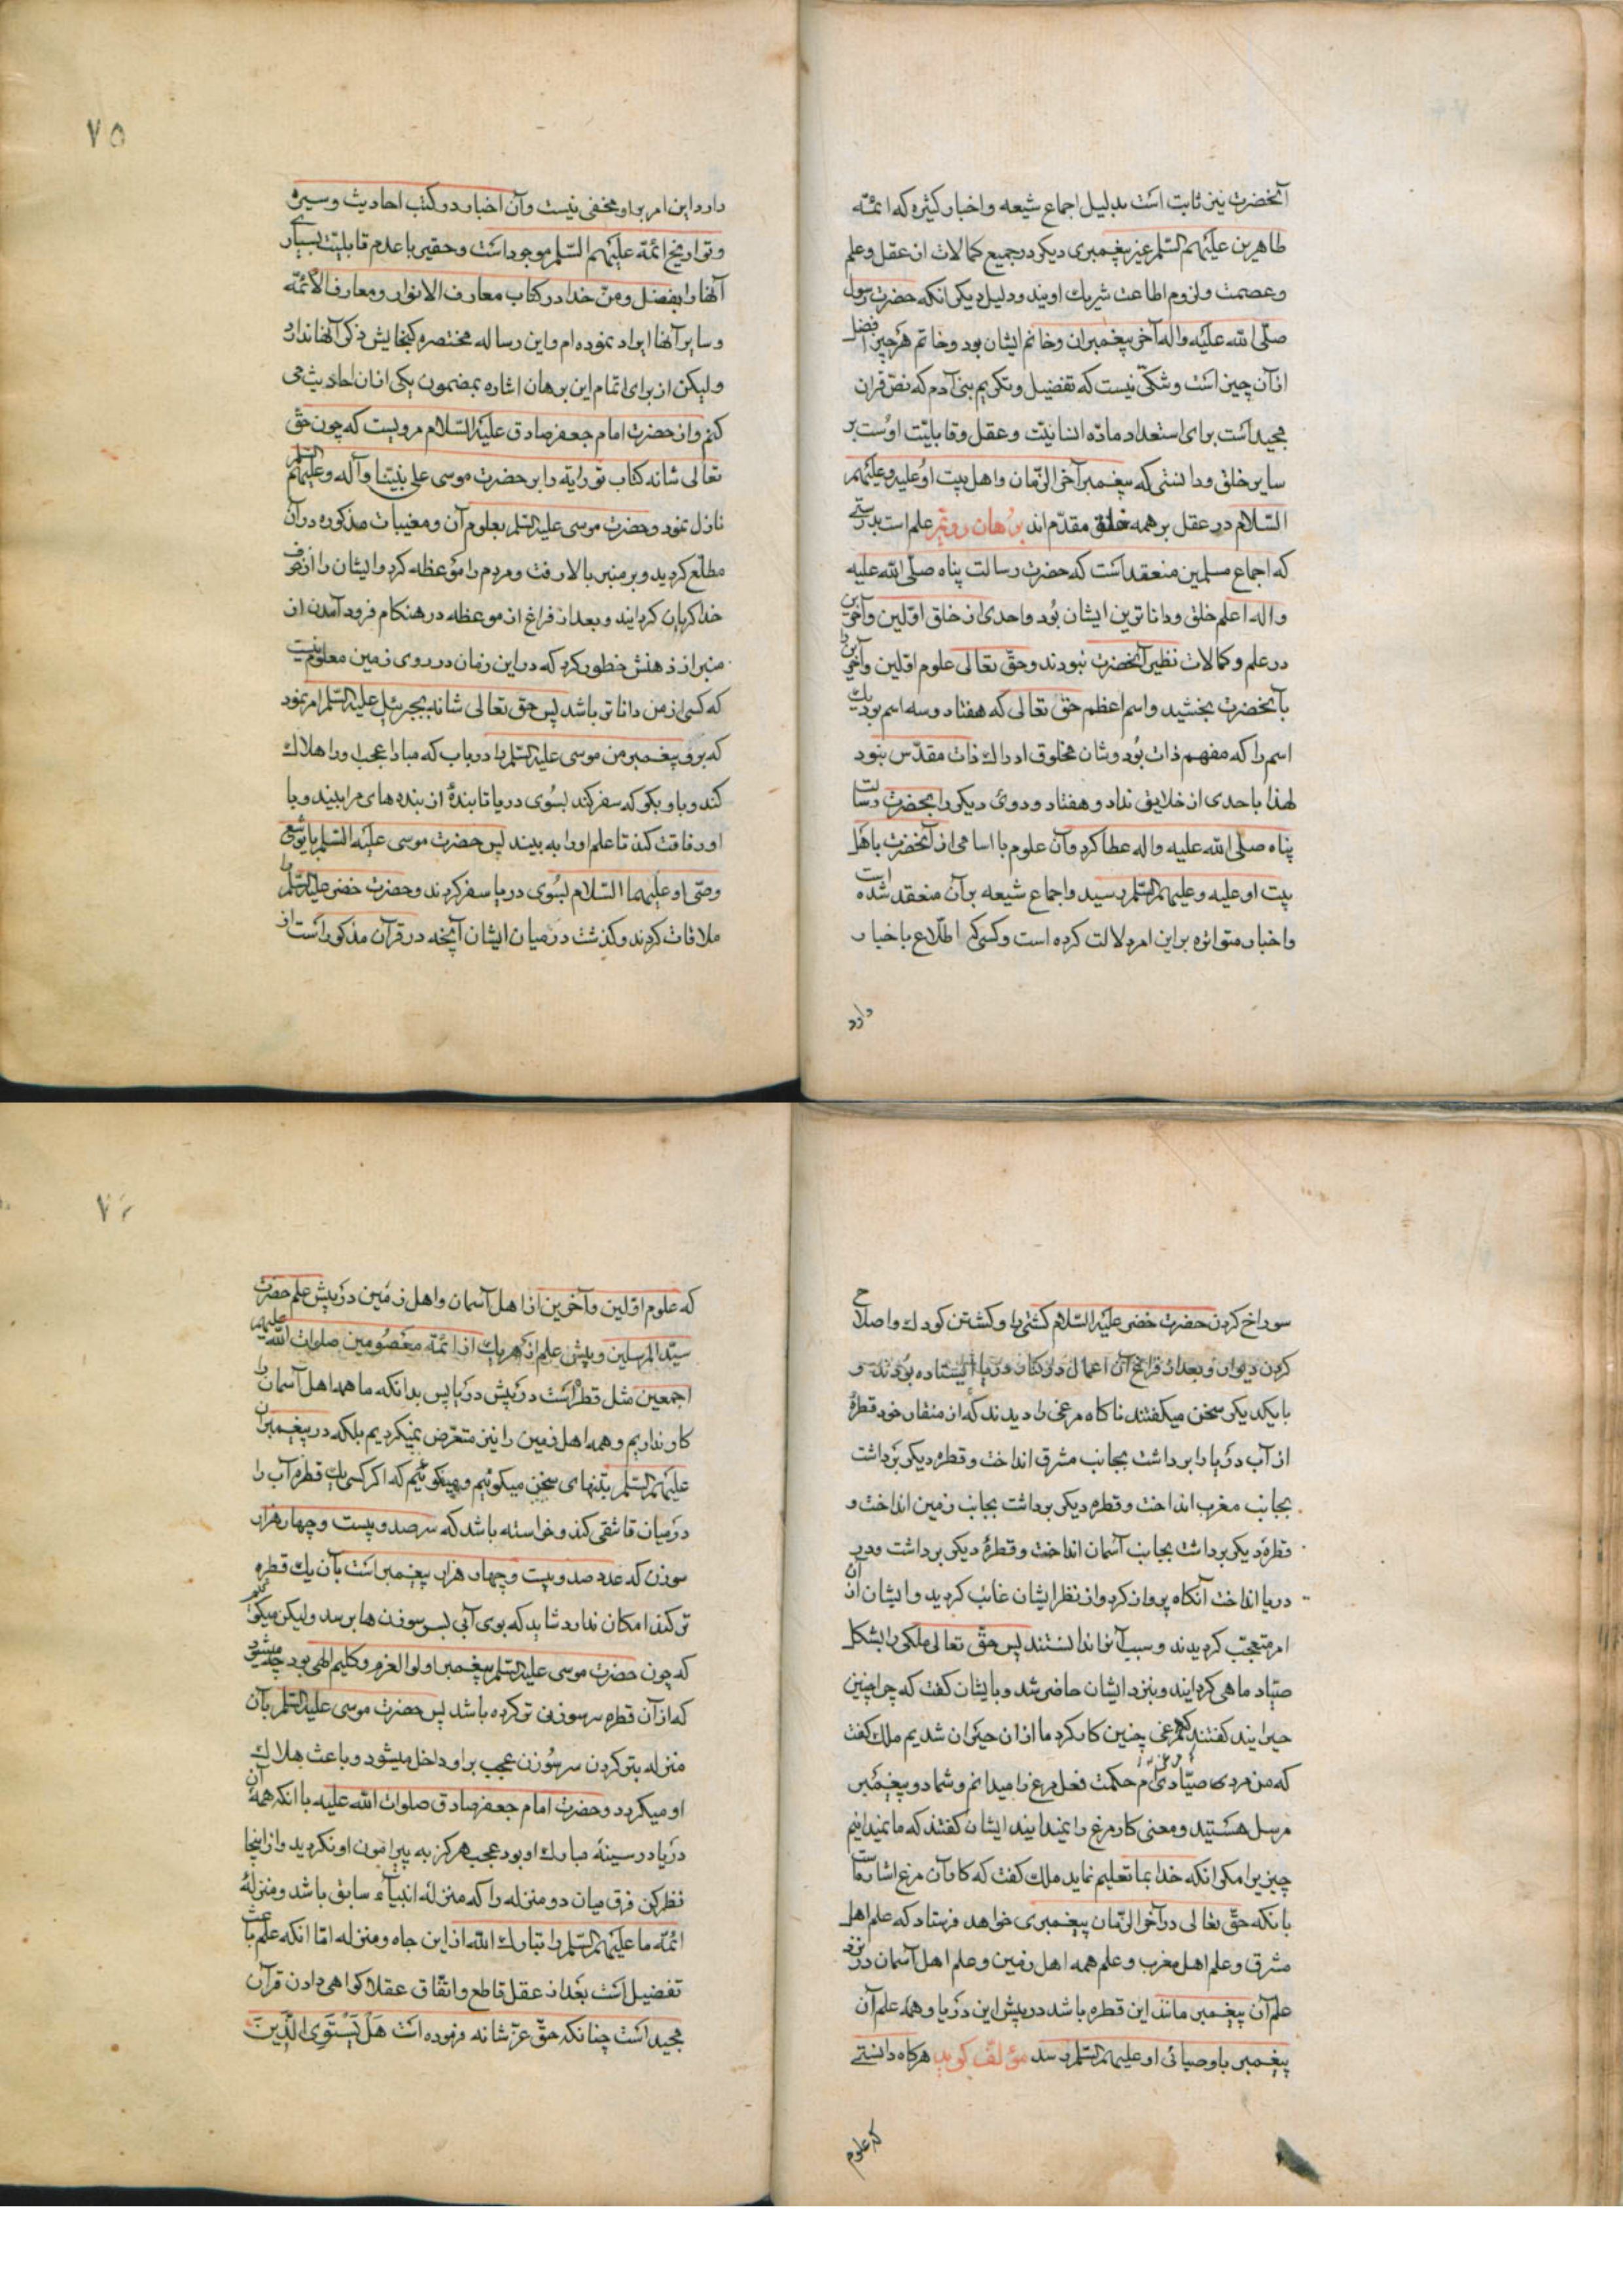 آنحضرت نیز ثابت است بدلیل اجماع شیعه و اخبار کثیره که ائمّه
طاهرین علیهم السّلم غیر پیغمبری دیکر در جمیع کمالات از عقل و علم
و عصمت و لزوم اطاعت شریک اویند و دلیل دیکر انکه حضرت رسول
صلّی الله علیه و اله آخر پیغمبران و خاتم ایشان بود و خاتم هر چیز افضل
از آن چیز است و شکّی نیست که تفضیل و تکریم بنی آدم که نصّ قران
مجید است برای استعداد مادّه انسانیّت و عقل و قابلیّت اوست بر
سایر خلق و دانستی که پیغمبر آخر الزّمان و اهل بیت او علیه و علیهم
السّلام در عقل بر همه خلق مقدّم اند برهان دویّم علم است بدرستی
که اجماع مسلمین منعقد است که حضرت رسالت پناه صلّی الله علیه
و اله اعلم خلق و داناترین ایشان بُود و احدی از خلق اوّلین و آخرین
در علم و کمالات نظیر آنحضرت نبودند و حقّ تعالی علوم اوّلین و آخرین را
بآنحضرت بخشید و اسم اعظم حقّ تعالی که هفتاد و سه اسم بود یک
اسم را که مفهم ذات بُود و شان مخلوق ادراک ذات مقدّس نبود
لهذا باحدی از خلایق نداد و هفتاد و دوی دیکر را بحضرت رسالت
پناه صلّی الله علیه و اله عطا کرد و آن علوم با اسامی از آنحضرت باهل
بیت او علیه و علیهم السّلم رسید و اجماع شیعه بر آن منعقد شده است
و اخبار متواتره بر این امر دلالت کرده است و کسی که اطّلاع باخبار
دارد
۷۵
دارد این امر بر او مخفی نیست و آن اخبار در کتب احادیث و سیره
و تواریخ ائمّه علیهم السّلم موجود است و حقیر با عدم قابلیّت بسیاری
آنها را بفضل و منّ خدا در کتاب معارف الانوار و معارف الائمّه
و سایر آنها ایراد نموده ام و این رساله مختصره کنجایش ذکر آنها ندارد
و لیکن از برای اتمام این برهان اشاره بمضمون یکی از ان احادیث می
کنم و از حضرت امام جعفر صادق علیه السّلام مرویست که چون حقّ
تعالی شانه کتاب توراية را بر حضرت موسی علی نبیّنا و آله و علیهم السّلم
نازل نمود و حضرت موسی علیه السّلم بعلوم آن و مغیبات مذکوره در آن
مطّلع کردید و بر منبر بالا رفت و مردم را موعظه کرد و ایشان را از خوف
خدا کریان کردانید و بعد از فراغ از موعظه در هنکام فرود آمدن از
منبر از ذهنش خطور کرد که در این زمان در روی زمین معلوم نیست
که کسی از من داناتر باشد پس حق تعالی شانه بجبرئیل علیه السّلم امر نمود
که برو پیغمبر من موسی علیه السّلم را دریاب که مبادا عجب او را هلاک
کند و باو بکو که سفر کند بسُوی دریا تا بندهٔ از بنده های مرا ببیند و با
او رفاقت کند تا علم او را به بیند پس حضرت موسی علیه السّلم با یوشع
وصّی او علیهما السّلام بسُوی دریا سفر کردند و حضرت خضر علیه السّلم را
ملاقات کردند و کذشت در میان ایشان آنچه در قرآن مذکور است از
سوراخ کردن حضرت خضر علیه السّلام کشتی را و کشتن کودک و اصلاح
کردن دیوار و بعد از فراغ آن اعمال در کنار دریا ایستاده بودند و
با یکدیکر سخن میکفتند ناکاه مرغی را دیدند که از منقار خود قطرهٔ
از آب دریا را برداشت بجانب مشرق انداخت و قطره دیکر برداشت
بجانب مغرب انداخت و قطره دیکر برداشت بجانب زمین انداخت و
قطرهٔ دیکر برداشت بجانب آسمان انداخت و قطرهٔ دیکر برداشت و در
دریا انداخت آنکاه پرواز کرد و از نظر ایشان غائب کردید و ایشان از آن
امر متعجّب کردیدند و سبب آنرا ندانستند پس حقّ تعالی ملکی را بشکل
صیّاد ماهی کردانید و بنزد ایشان حاضر شد و بایشان کفت که چرا چنین
حیرانید کفتند که مرغی چنین کار کرد ما از ان حیران شدیم ملک کفت
که من مرد صیّادی ام حکمت فعل مرغ را میدانم و شما دو پیغمبر
مرسل هستید و معنی کار مرغ را نمیدانید ایشان کفتند که ما نمیدانیم
چیزیرا مکر انکه خدا بما تعلیم نماید ملک کفت که کار آن مرغ اشارتست
بانکه حقّ تعالی در آخر الزّمان پیغمبری خواهد فرستاد که علم اهل
مشرق و علم اهل مغرب و علم همه اهل زمین و علم اهل آسمان در نزد
علم آن پیغمبر مانند این قطره باشد در پیش این دریا و همه علم آن
پیغمبر باوصیائی او علیهم السّلم رسد مؤلّف کوید هرکاه دانستی
که علوم
که علوم اوّلین و آخرین از اهل آسمان و اهل زمین در پیش علم حضرت
سیّد المرسلین و پیش علم از هر یک از ائمّه معصُومین صلوات الله علیهم
اجمعین مثل قطره است در پیش دریا پس بدانکه ما همه اهل آسمان را
کار نداریم و همه اهل زمین را نیز متعرّض نمیکردیم بلکه در پیغمبران
علیهم السّلم بتنهای سخن میکوئیم و میکوئیم که اکر کسی یک قطره آب را
در میان قاشقی کند و خواسته باشد که سر صد و بیست و چهار هزار
سوزن که عدد صد و بیت و چهار هزار پیغمبر است بآن یک قطره
تر کند امکان ندارد شاید که بوی آبی بسر سوزن ها برسد و لیکن میکوئیم
که چون حضرت موسی علیه السّلم پیغمبر اولوا العزم و کلیم الهی بود چه میشود
که از آن قطره سر سوزنی تر کرده باشد پس حضرت موسی علیه السّلم بآن
منزله بتر کردن سر سُوزن عجب بر او داخل میشود و باعث هلاک
او میکردد و حضرت امام جعفر صادق صلوات الله علیه با انکه همهٔ آن
دریا در سینهٔ مبارک او بود عجب هرکز به پیرامون او نکردید و از اینجا
نظر کن فرق میان دو منزله را که منزلهٔ انبیآء سابق باشد و منزلهٔ
ائمّه ما علیهم السّلم را تبارک الله از این جاه و منزله امّا انکه علم باعث
تفضیل است بَعد از عقل قاطع و اتّفاق عقلا کواهی دادن قرآن
مجید است چنانکه حقّ عزّ شانه فرموده است هَلْ یَسْتَوِی الَّذِینَ